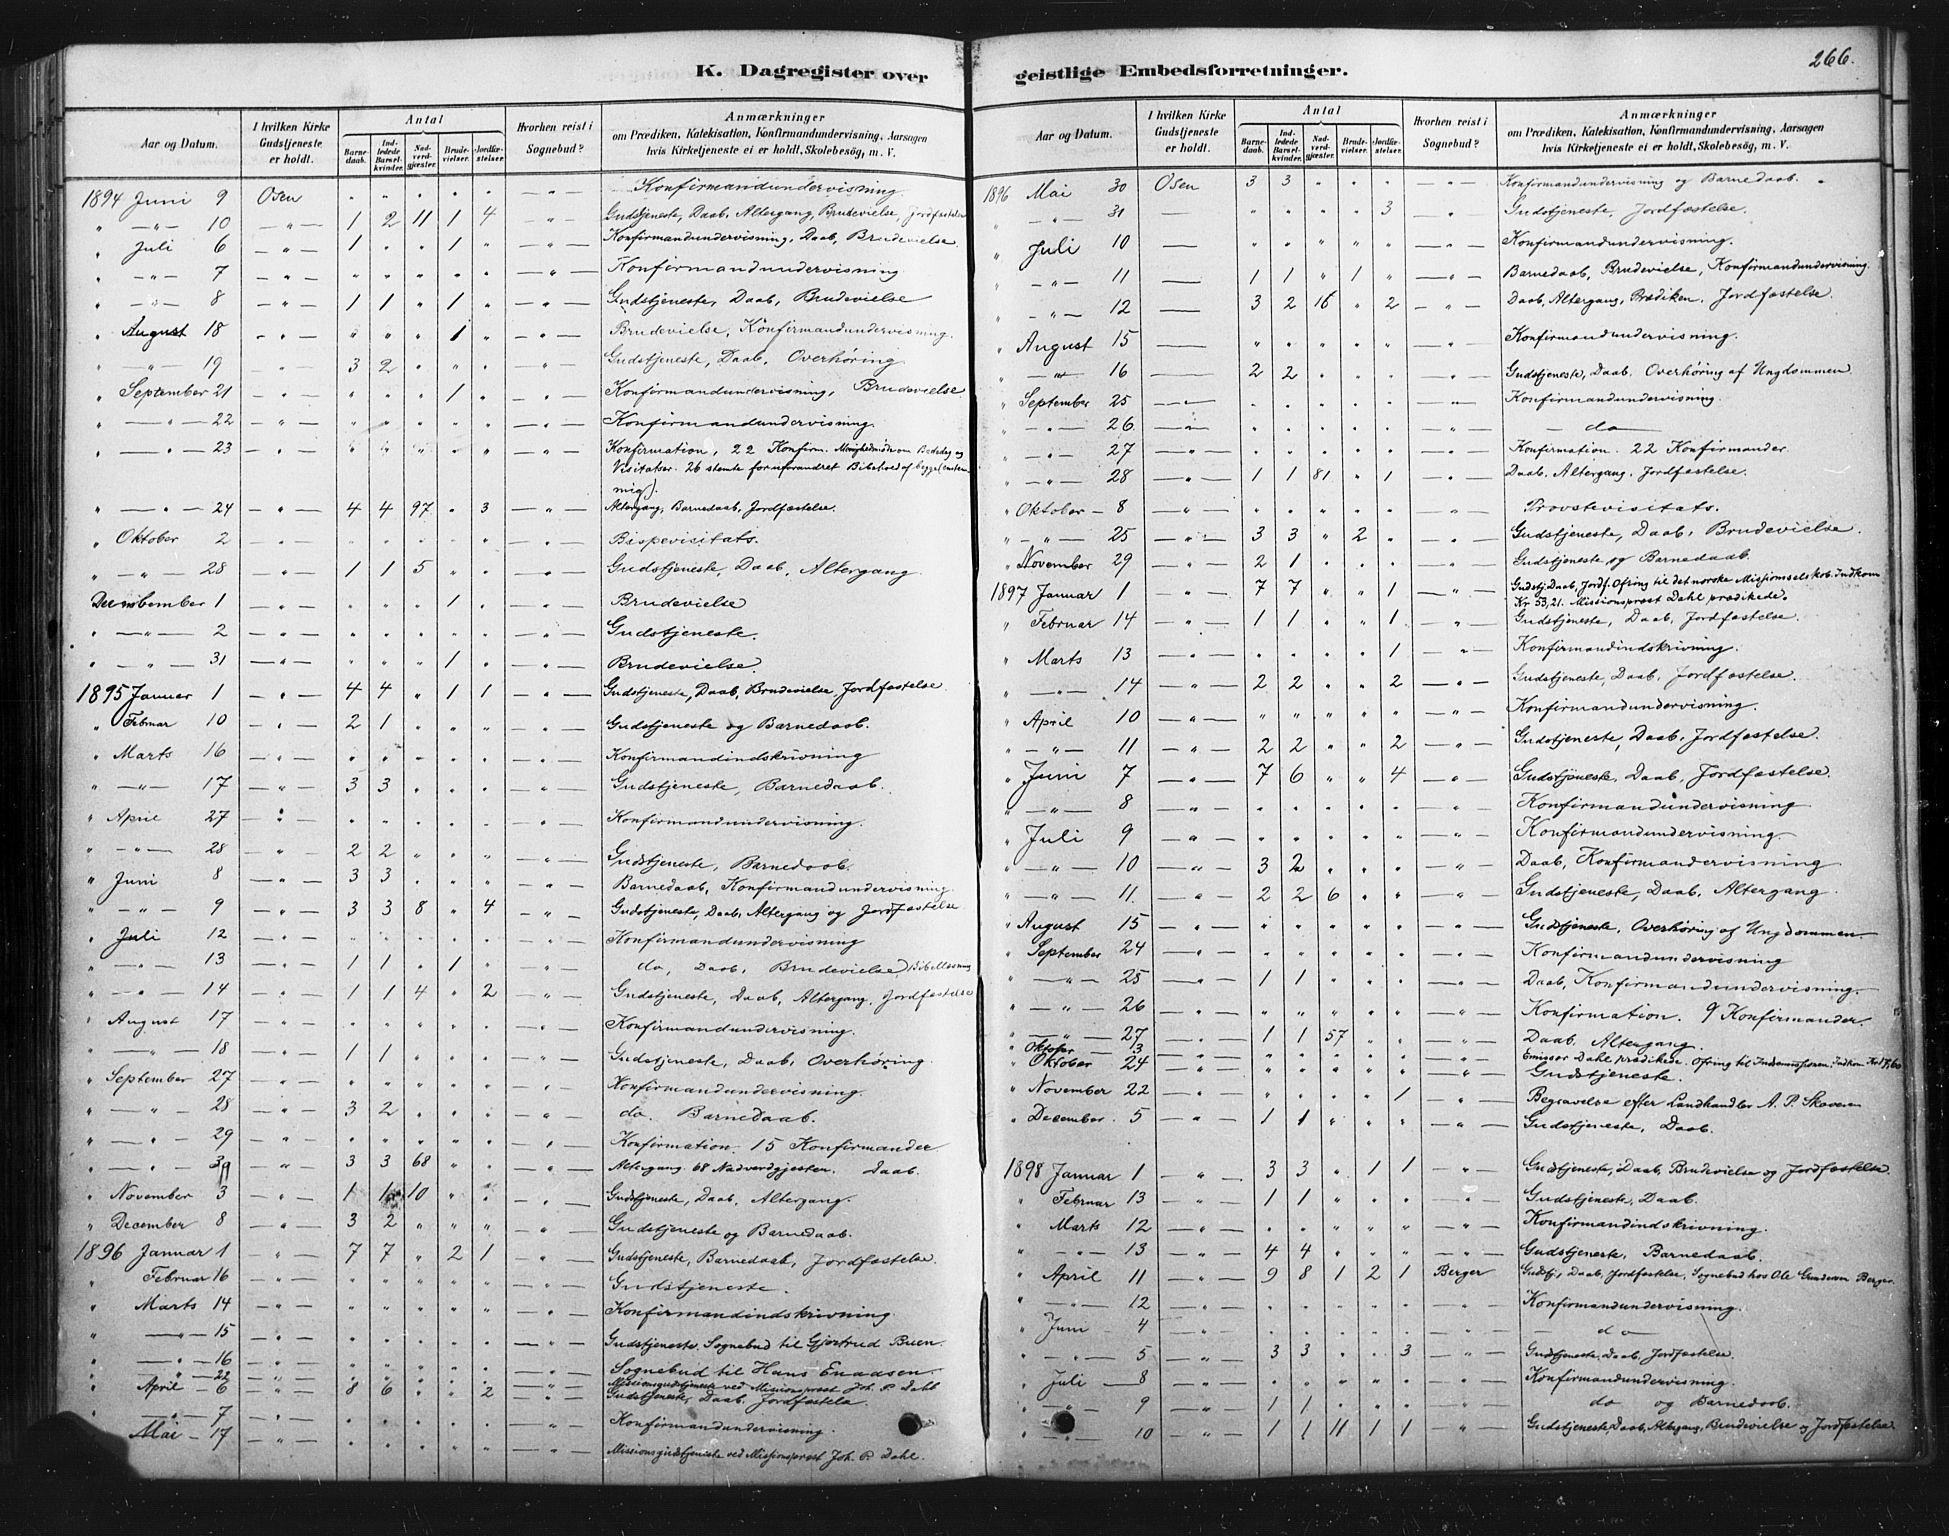 K. Dagregister over
Aar og Datum. I hvilken Kirke Gudstjeneste er holdt. Antal Barnedaab. Indledede Barselkvinder. Nadverdgjæster. Brudevielser. Jordfæstelser. Hvorhen reist i Sognebud? Anmærkninger om Prædiken, Katekisation, Konfirmandundervisning, Aarsagen hvis Kirketjeneste ei er holdt, Skolebesøg, m. V.
1894 Juni 9 Osen " " " " " — " — Konfirmandundervisning.
" — " — 10 — " — 1 2 11 1 4 — " — Gudstjeneste, Daab, Altergang, Brudevielse, Jordfæstelse
" Juli 6 — " — 1 " " 1 " — " — Konfirmandundervisning, Daab, Brudevielse.
" — " — 7 — " — " " " " " — " — Konfirmandundervisning
" — " — 8 — " — 1 1 " 1 " — " — Gudstjeneste, Daab, Brudevielse
" August 18 — " — " " " 1 " — " — Brudevielse, Konfirmandundervisning.
" — " — 19 — " — 3 2 " " " — " — Gudstjeneste, Daab, Overhøring
" September 21 — " — " " " 1 " — " — Konfirmandundervisning, Brudevielse
" — " — 22 — " — " " " " " — " — Konfirmandundervisning.
" — " — 23 — " — " " " " " — " — Konfirmation, 22 Konfirm. Menighedsmøde om Bededag og
Visitatser. 26 stemte for uforandret
" — " — 24 — " — 4 4 97 " 3 — " — Altergang, Barnedaab, Jordfæstelse.
" Oktober 2 — " — " " " " " — " — Bispevisitats.
" — " — 28 — " — 1 1 5 " " — " — Gudstjeneste, Daab, Altergang
December 1 — " — " " " 1 " — " — Brudevielse
" — " — 2 — " — " " " " " — " — Gudstjeneste.
" — " — 31 — " — " " " 1 " — " — Brudevielse
1895 Januar 1 — " — 4 4 " 1 1 — " — Gudstjeneste, Daab, Brudevielse, Jordfæstelse.
" Februar 10 — " — 2 1 " " " — " — Gudstjeneste og Barnedaab.
" Marts 16 — " — " " " " " — " — Konfirmandindskrivning
" — " — 17 — " — 3 3 " " " — " — Gudstjeneste, Barnedaab.
" April 27 — " — " " " " " — " — Konfirmandundervisning.
" — " — 28 — " — 2 2 " " " — " — Gudstjeneste, Barnedaab.
" Juni 8 — " — 3 3 " " " — " — Barnedaab, Konfirmandundervisning.
" — " — 9 — " — 3 3 8 " 4 — " — Gudstjeneste, Daab, Altergang og Jordfæstelse
" Juli 12 — " — " " " " " — " — Konfirmandundervisning
" — " — 13 — " — 1 1 " 1 " — " — do, Daab, Brudevielse Bibellæsning
" — " — 14 — " — 1 1 4 " 2 — " — Gudstjeneste, Daab, Altergang, Jordfæstelse
" August 17 — " — " " " " " — " — Konfirmandundervisning.
" — " — 18 — " — 1 1 " " " — " — Gudstjeneste, Daab, Overhøring.
" September 27 — " — " " " " " — " — Konfirmandundervisning.
" — " — 28 — " — 3 2 " " " — " — do. Barnedaab.
" — " — 29 — " — " " " " " — " — Konfirmation. 15 Konfirmander
" — " — 30 — " — 3 3 68 " " — " — Altergang. 68 Nadverdgjester. Daab.
" November 3 — " — 1 1 10 " " — " — Gudstjeneste, Daab, Altergang.
" December 8 — " — 3 2 " " " — " — Gudstjeneste og Barnedaab.
1896 Januar 1 — " — 7 7 " 2 1 — " — Gudstjeneste, Barnedaab, Jordfæstelse.
" Februar 16 — " — " " " " " — " — Gudstjeneste.
" Marts 14 — " — " " " " " — " — Konfirmandindskrivning
" — " — 15 — " — " " " " " — " — Gudstjeneste. Sognebud til Gjertrud Buen.
" — " — 16 — " — " " " " " — " — Sognebud til Hans
" — " — 22 — " — Missionsgudstjeneste ved Missionsprest Joh. P. Dahl
" April — 6 — " — 8 6 " " 2 — " — Gudstjeneste, Daab. Jordfæstelse
" — " — 7 — " — " " " " " — " — Konfirmandundervisning.
" Mai — 17 — " — " " " " " — " — Missionsgudstjeneste ved Missionsprest Joh. P. Dahl.
geistlige Embedsforretninger. 266.
Aar og Datum. I hvilken Kirke Gudstjeneste er holdt. Antal Barnedaab. Indledede Barselkvinder. Nadverdgjæster. Brudevielser. Jordfæstelser. Hvorhen reist i Sognebud? Anmærkninger om Prædiken, Katekisation, Konfirmandundervisning, Aarsagen hvis Kirketjeneste ei er holdt, Skolebesøg, m. V.
1896 Mai 30 Osen 3 3 " " " — " — Konfirmandundervisning og Barnedaab.
" — " — 31 — " " " " 3 " Gudstjeneste, Jordfæstelse.
" Juli 10 — " " " " " — " — Konfirmandundervisning.
" — " — 11 — 1 1 " 1 " — " — Barnedaab, Brudevielse, Konfirmandundervisning.
" — " — 12 — 3 2 16 " 2 — " — Daab, Altergang, Prædiken. Jordfæstelse.
" August 15 — " " " " " — " — Konfirmandundervisning.
" — " — 16 — 2 2 " " " — " — Gudstjeneste, Daab. Overhøring af Ungdommen
" September 25 — " — " " " " " — " — Konfirmandundervisning.
" — " — 26 — " — " " " " " — " — do
" — " — 27 — " — " " " " " — " — Konfirmation. 22 Konfirmander
" — " — 28 — " — 1 1 81 " 1 — " — Daab. Altergang. Jordfæstelse.
" Oktober — 8 — " — " " " " " " Provstevisitats.
" — " — 25 — " — 3 3 " 2 " — " — Gudstjeneste, Daab, Brudevielse.
" November 29 — " — 2 1 " " " — " — Gudstjeneste og Barnedaab.
1897 Januar 1 — " — 7 7 " " 1 — " — Gudstj. Daab, Jordf. Ofring til det norske Missionsselskab. Indkom
Kr 53,21. Missionsprest Dahl prædikede.
" Februar 14 — " — 1 1 " " 1 — " — Gudstjeneste, Daab, Jordfæstelse.
" Marts 13 — " — " " " " 1 — " — Konfirmandindskrivning.
" — " — 14 — " — 2 2 " " 2 — " — Gudstjeneste, Daab, Jordfæstelse.
" April 10 — " — " " " " " — " — Konfirmandundervisning.
" — " — 11 — " — 2 2 " " 2 — " — Gudstjeneste, Daab, Jordfæstelse.
" Juni 7 — " — 7 6 " " 4 — " — Gudstjeneste, Daab, Jordfæstelse.
" — " — 8 — " — " " " " " " Konfirmandundervisning
" Juli 9 — " — " " " " " — " — Konfirmandundervisning.
" — " — 10 — " — 3 2 " " " — " — Daab, Konfirmandervisning
" — " — 11. — " — 2 2 6 " " — " — Gudstjeneste, Daab, Altergang.
" August 15 — " — " " " " " — " — Gudstjeneste, Overhøring af Ungdommen.
" September 24 — " — " " " " " — " — Konfirmandundervisning
" — " — 25 — " — 1 1 " " " — " — Daab, Konfirmandundervisning.
" — " — 26 — " — " " " " " — " — Konfirmation. 9 Konfirmander.
" — " — 27 — " — 1 1 57 " " — " — Daab. Altergang.
" Oktober — 3 — " — " " " " " — " — Emissær Dahl prædikede. Ofring til Indremissionen. Indkom Kr 17,60
" Oktober 24 — " — " " " " " — " — Gudstjeneste.
" November 22 — " — " " " " 1 — " — Begravelse efter Landhandler A. P.
" December 5 — " — 1 1 " " " — " — Gudstjeneste, Daab.
1898 Januar 1 " 3 3 " 1 1 — " — Gudstjeneste, Daab, Brudevielse og Jordfæstelse.
" Februar 13 " 1 1 " " " — " — Gudstjeneste, Daab.
" Marts 12 — " — " " " " " — " — Konfirmandindskrivning.
" — " — 13 — " — 4 4 " " " — " — Gudstjeneste, Barnedaab.
" April 11 — " — 9 8 1 2 1 Berger Gudstj, Daab, Jordfæstelse, Sognebud hos Ole Gundersen Berger
" — " — 12 — " — " " " " " — " — Konfirmandundervisning.
" Juni 4 — " — " " " " " — " — do
" — " — 5 — " — 3 3 " " 3 — " — Gudstjeneste, Daab, Jordfæstelse.
" Juli — 8 — " — " " " " " — " — Konfirmandundervisning.
" — " — 9 — " — 1 1 " " " — " — do og Barnedaab.
" — " — 10 — " — 1 1 11 1 1 " Gudstjeneste, Daab, Altergang, Brudevielse og Jordfæstelse